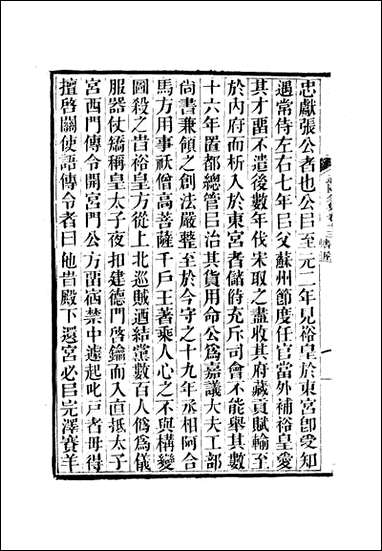 忠獻張公者也公㠯至元二年見裕皇於東宮卽受知
遇常侍左右七年㠯父蘇州節度任官當外補裕皇愛
其才畱不遣後數年伐宋取之盡收其府藏貢賦輸至
於內府而析入於東宮者儲偫充斥司會不能舉其數
十六年置都總管㠯治其貨用命公爲嘉議大夫工部
尚書兼領之創法嚴整至於今守之十九年丞相阿合
馬方用事祅僧高菩薩千戶王著乘人心之不與構變
圖殺之昔裕皇方從上北巡賊酒結黨數百人僞爲儀
服器仗矯稱皇太子夜扣建德門啓鑰而入直抵太子
宮西門傳令開宮門公方畱宿禁中遽起叱戸者毋得
擅啓關使語傳令者曰他昔殿下還宮必㠯完澤賽羊